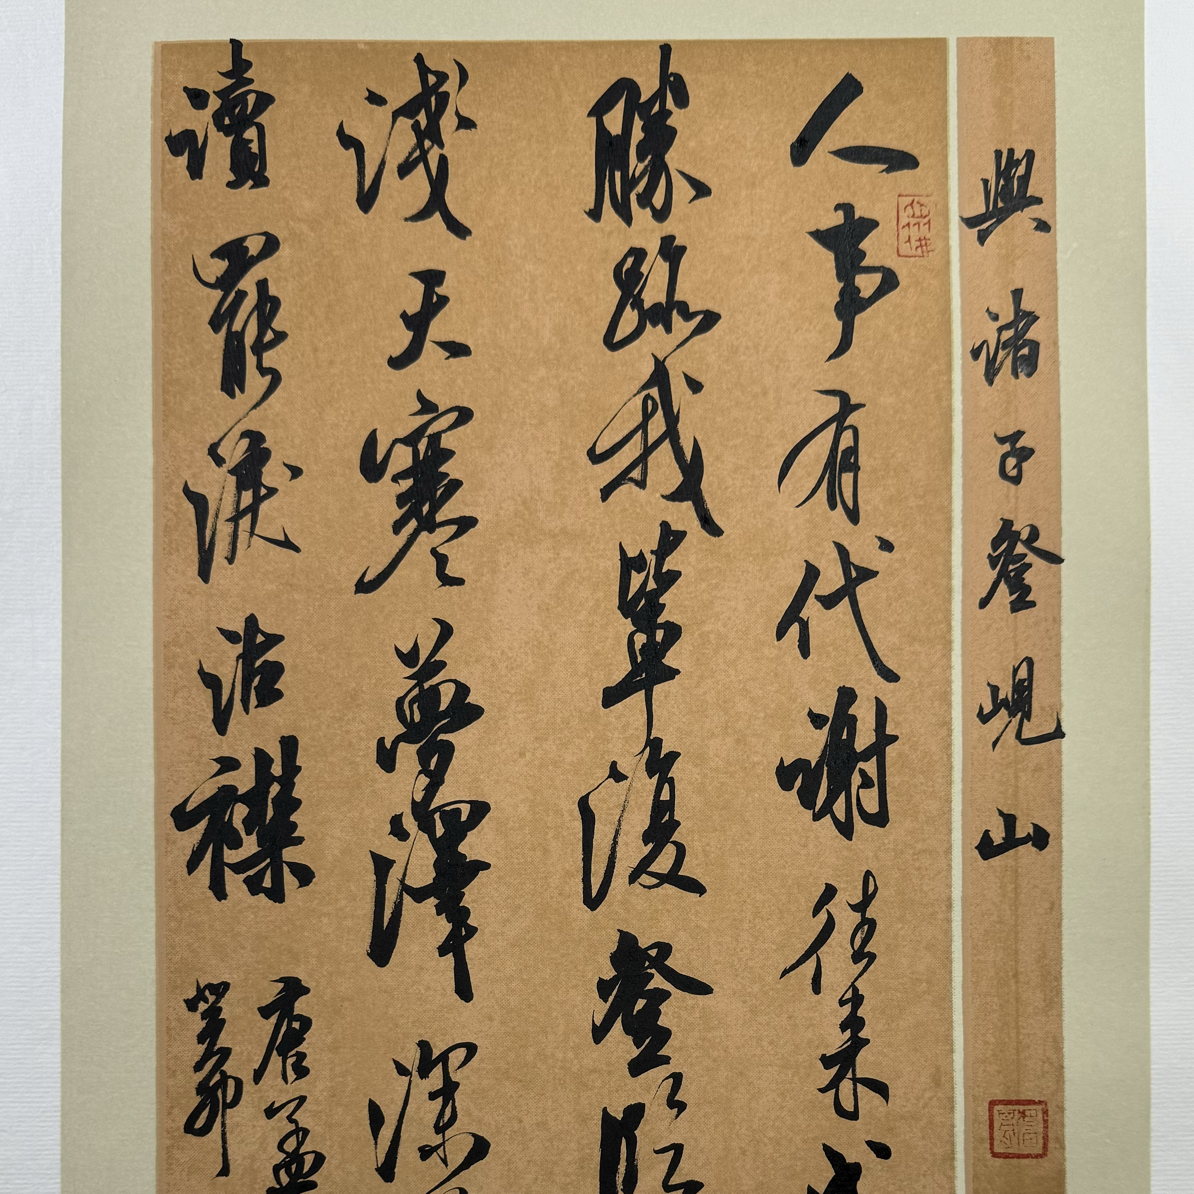 與諸子登峴山
人事有代謝往来成
勝跡我輩復登臨
淺天寒夢澤深
讀罷淚沾襟
唐孟
癸卯